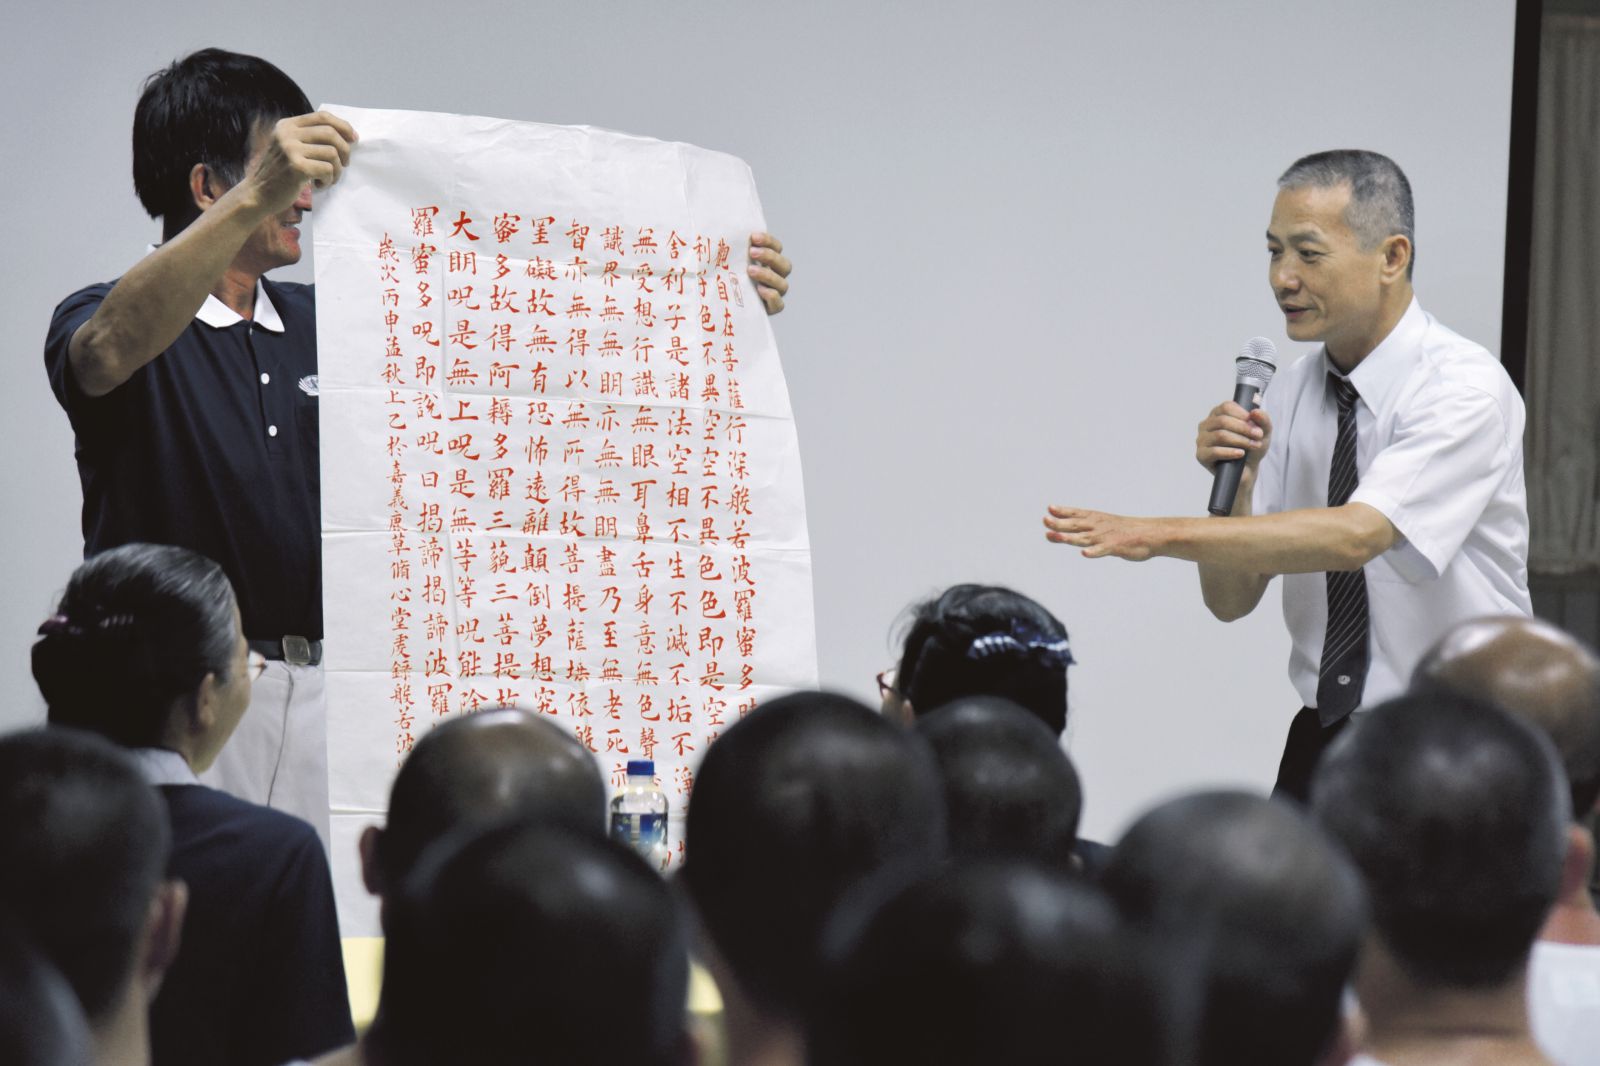 觀自在菩薩行深般若波羅蜜多時
利子色不異空空不異色色即是空
舍利子是諸法空相不生不滅不垢不淨
無受想行識無眼耳鼻舌身意無色聲
識界無無眀亦無無眀盡乃至無老死亦
智亦無得以無所得故菩提薩埵依般
罣礙故無有恐怖遠離顛倒夢想究
蜜多故得阿耨多羅三藐三菩提故
大眀呪是無上呪是無等等呪能除
羅蜜多呪即說呪曰揭諦揭諦波羅
歲次丙申孟秋上乙於嘉義鹿草脩心堂虔錄般若波